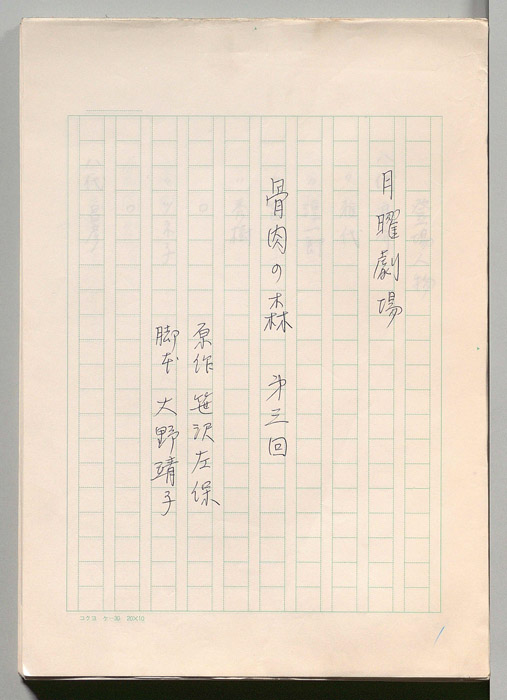 月曜劇場
骨肉の森　第三回
原作　笹沢左保
脚本　大野靖子
コクヨ　ケ-35　20×10